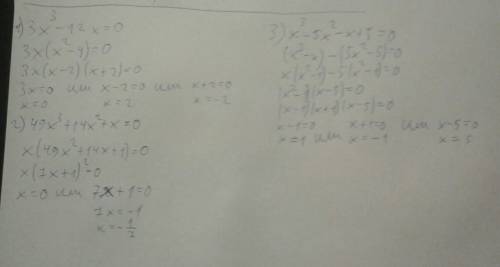 1) 3x³-12x=0
3x(x²-4)=0
3x(x-2)(x+2)=0
3x=0 или x-2=0 или x+2=0
x=0 x=2 x=-2
2) 49x³+14x²+x=0
x(49x²+14x+1)=0
x(7x+1)²=0
x=0 или 7x+1=0
7x=-1
x=-1/7
3) x³-5x²-x+5=0
(x³-x)-(5x²-5)=0
x(x²-1)-5(x²-1)=0
(x²-1)(x-5)=0
(x-1)(x+1)(x-5)=0
x-1=0 x+1=0 или x-5=0
x=1 или x=-1 x=5